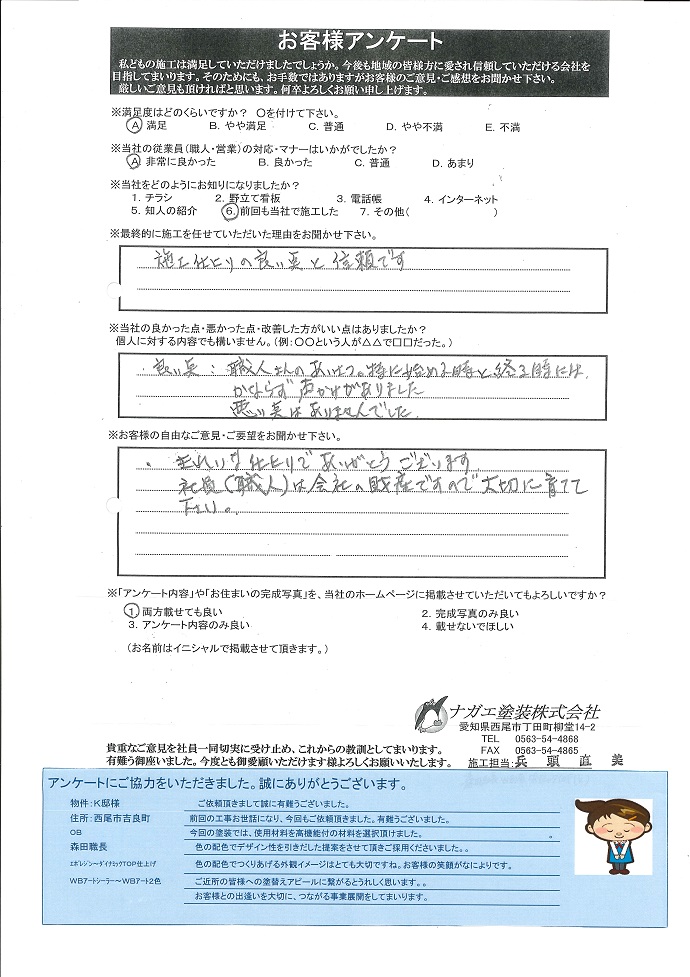 お客様アンケート
私どもの施工は満足していただけましたでしょうか。今後も地域の皆様方に愛され信頼していただける会社を
目指してまいります。そのためにも、お手数ではありますがお客様のご意見・ご感想をお聞かせ下さい。
厳しいご意見も頂ければと思います。何卒よろしくお願い申し上げます。
※満足度はどのくらいですか？ 〇を付けて下さい。
A. 満足 B. やや満足 C. 普通 D. やや不満 E. 不満
※当社の従業員（職人・営業）の対応・マナーはいかがでしたか？
A. 非常に良かった B. 良かった C. 普通 D. あまり
※当社をどのようにお知りになりましたか？
1. チラシ 2. 野立て看板 3. 電話帳 4. インターネット
5. 知人の紹介 6. 前回も当社で施工した 7. その他( )
※最終的に施工を任せていただいた理由をお聞かせ下さい。
施工仕上りの良い点と信頼です
※当社の良かった点・悪かった点・改善した方がいい点はありましたか？
個人に対する内容でも構いません。（例：〇〇という人が△△で口口だった。）
良い点：職人さんのあいさつ。特に始める時と終る時には
かならず声かけがありました
悪い点はありませんでした
※お客様の自由なご意見・ご要望をお聞かせ下さい。
・きれいな仕上りでありがとうございます
社員（職人）は会社の財産ですので大切に育てて
下さい。
※「アンケート内容」や「お住まいの完成写真」を、当社のホームページに掲載させていただいてもよろしいですか？
1. 両方載せても良い 2. 完成写真のみ良い
3. アンケート内容のみ良い 4. 載せないでほしい
（お名前はイニシャルで掲載させて頂きます。）
ナガエ塗装株式会社
愛知県西尾市丁田町柳堂14-2
TEL 0563-54-4868
FAX 0565-54-4865
貴重なご意見を社員一同切実に受け止め、これからの教訓としてまいります。
有難う御座いました。今度とも御愛顧いただけます様よろしくお願いいたします。 施工担当：兵頭直美
アンケートにご協力をいただきました。誠にありがとうございます。
物件：K邸様 ご依頼頂きまして誠に有難うございました。
住所：西尾市吉良町 前回の工事お世話になり、今回もご依頼頂きました。有難うございました。
OB 今回の塗装では、使用材料を高機能付の材料を選択頂けました。 。
森田職長 色の配色でデザイン性を引きだした提案をさせて頂きご採用くださいました。。
ｴﾎﾟﾚｼﾞﾝ～ﾀﾞｲﾅﾐｯｸTOP仕上げ 色の配色でつくりあげる外観イメージはとても大切ですね。お客様の笑顔がなによりです。
WBｱｰﾄｼｰﾗｰ～WBｱｰﾄ2色 ご近所の皆様への塗替えアピールに繋がるとうれしく思います。。
お客様との出逢いを大切に、つながる事業展開をしてまいります。